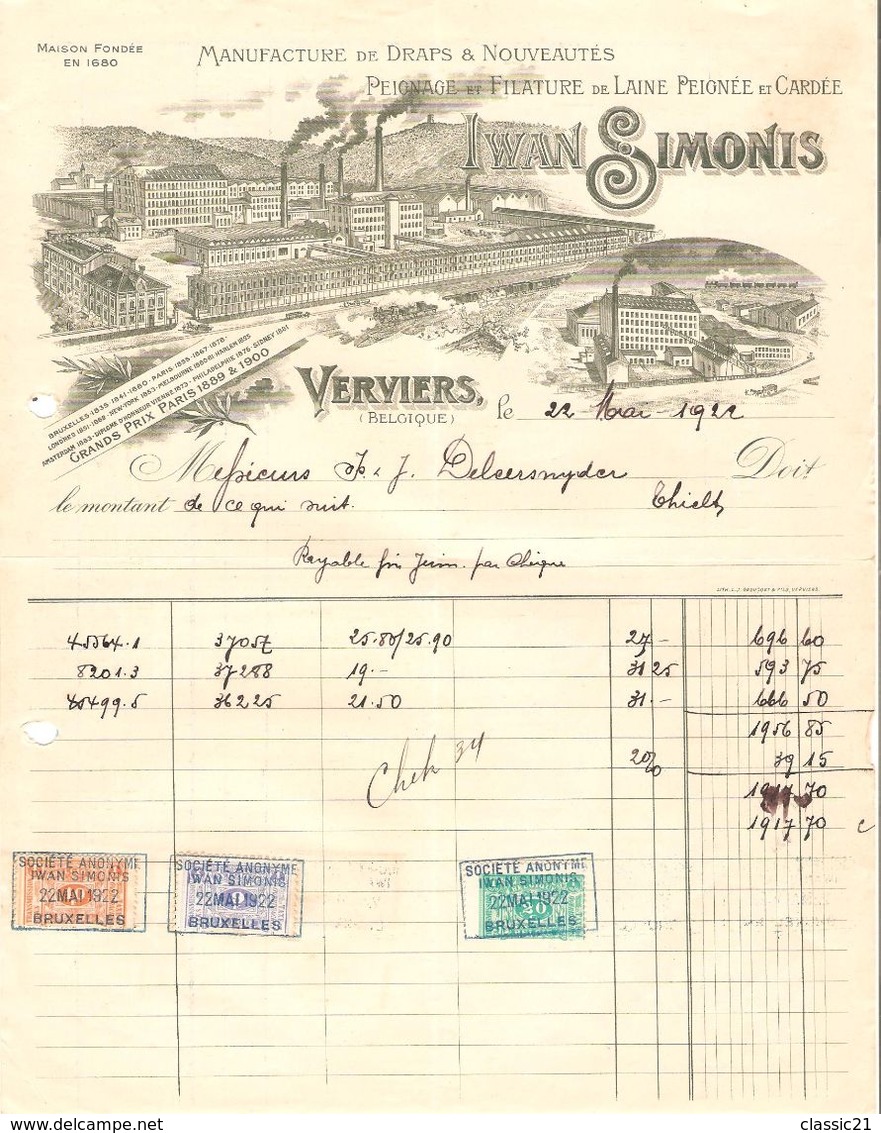 MAISON FONDÉE
EN 1680
MANUFACTURE DE DRAPS & NOUVEAUTÉS
PEIGNAGE ET FILATURE DE LAINE PEIGNÉE ET CARDÉE
IWAN SIMONIS
BRUXELLES·1835·1841·1880·PARIS·1855·1867·1878
LONDRES 1851·1862·NEW-YORK 1853·MELBOURNE 1880-81 HARLEM 1825
AMSTERDAM 1883·DIPLOME D'HONNEUR VIENNE 1873·PHILADELPHIE 1876·SIDNEY 1881
GRANDS PRIX PARIS 1889 & 1900
VERVIERS, le 22 Mai 1922
(BELGIQUE)
Messieurs & J. Delcersnyder Doit
le montant de ce qui suit. Thielt
Payable fin Juin par Chèque
LITH. L.J. & FILS, VERVIERS.
45564.1 37057 25.80/25.90 27 - 696 60
8201.3 37288 19.- 31 25 593 75
45499.5 36225 21.50 31.- 666 50
1956 85
2% 39 15
Chek 34
1917 70
1917 70
SOCIÉTÉ ANONYME
IWAN SIMONIS
22 MAI 1922
BRUXELLES
SOCIÉTÉ ANONYME
IWAN SIMONIS
22 MAI 1922
BRUXELLES
SOCIÉTÉ ANONYME
IWAN SIMONIS
22 MAI 1922
BRUXELLES
20
delcampe.net
classic21